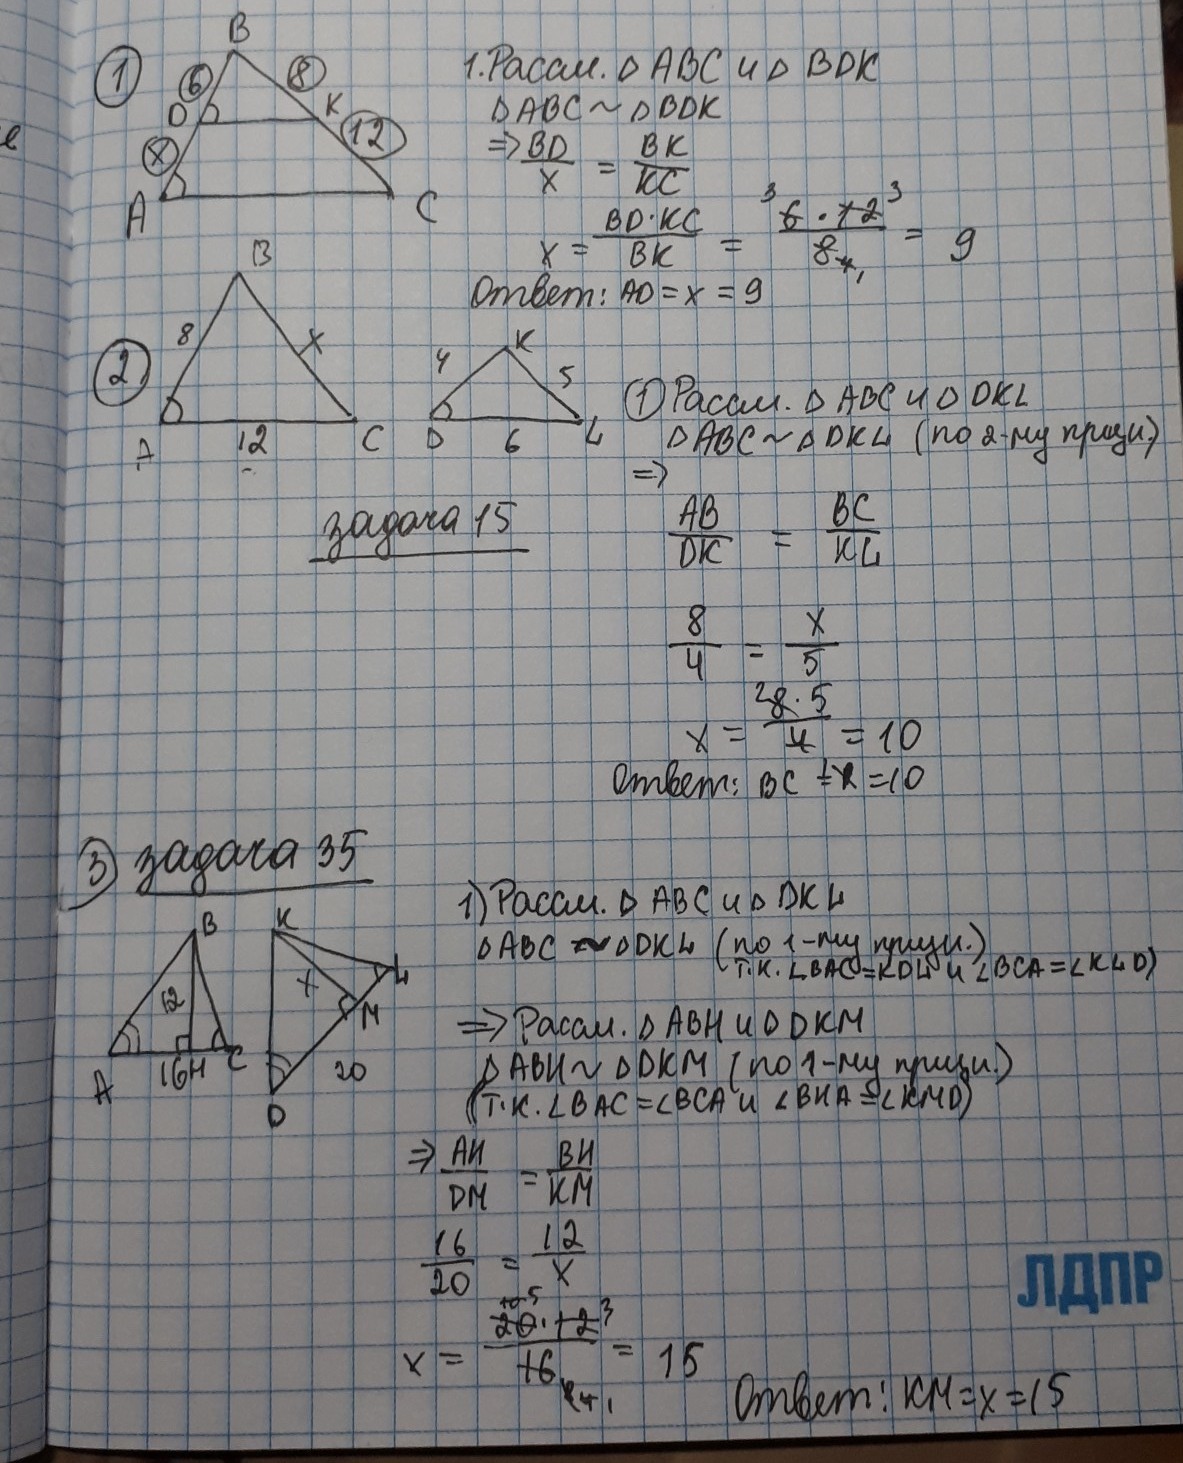 1
B
6
8
D
K
12
x
A
C
1. Рассм. △ ABC и △ BDK
△ ABC ~ △ BDK
=> BD/x = BK/KC
x = BD·KC/BK = 6·12/8 = 9
Ответ: AD = x = 9
2
B
8
x
A
12
C
4
K
5
D
6
L
задача 15
1) Рассм. △ ABC и △ DKL
△ ABC ~ △ DKL (по 2-му призн.)
=>
AB/DK = BC/KL
8/4 = x/5
x = 8·5/4 = 10
Ответ: BC = x = 10
3) задача 35
B
12
A
16
H
C
K
x
L
M
20
D
1) Рассм. △ ABC и △ DKL
△ ABC ~ △ DKL (по 1-му призн.)
т.к. ∠BAC = KDL и ∠BCA = ∠KLD)
=> Рассм. △ ABH и △ DKM
△ ABH ~ △ DKM (по 1-му призн.)
(т.к. ∠BAC = ∠BCA и ∠BHA = ∠KMD)
=> AH/DM = BH/KM
16/20 = 12/x
x = 20·12/16 = 15
Ответ: KM = x = 15
ЛДПР